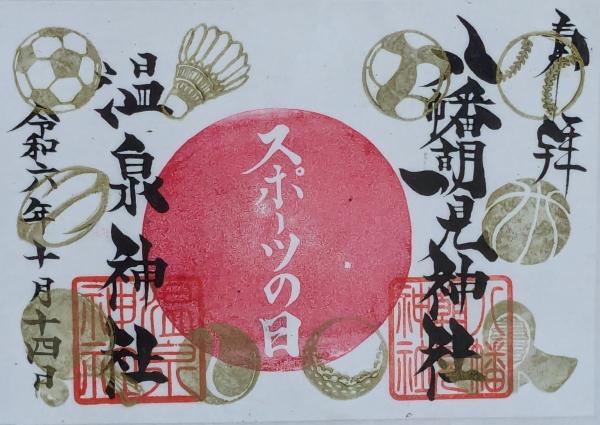 奉拝
八幡朝見神社
スポーツの日
温泉神社
令和六年十月十四日
八幡朝見神社
温泉神社